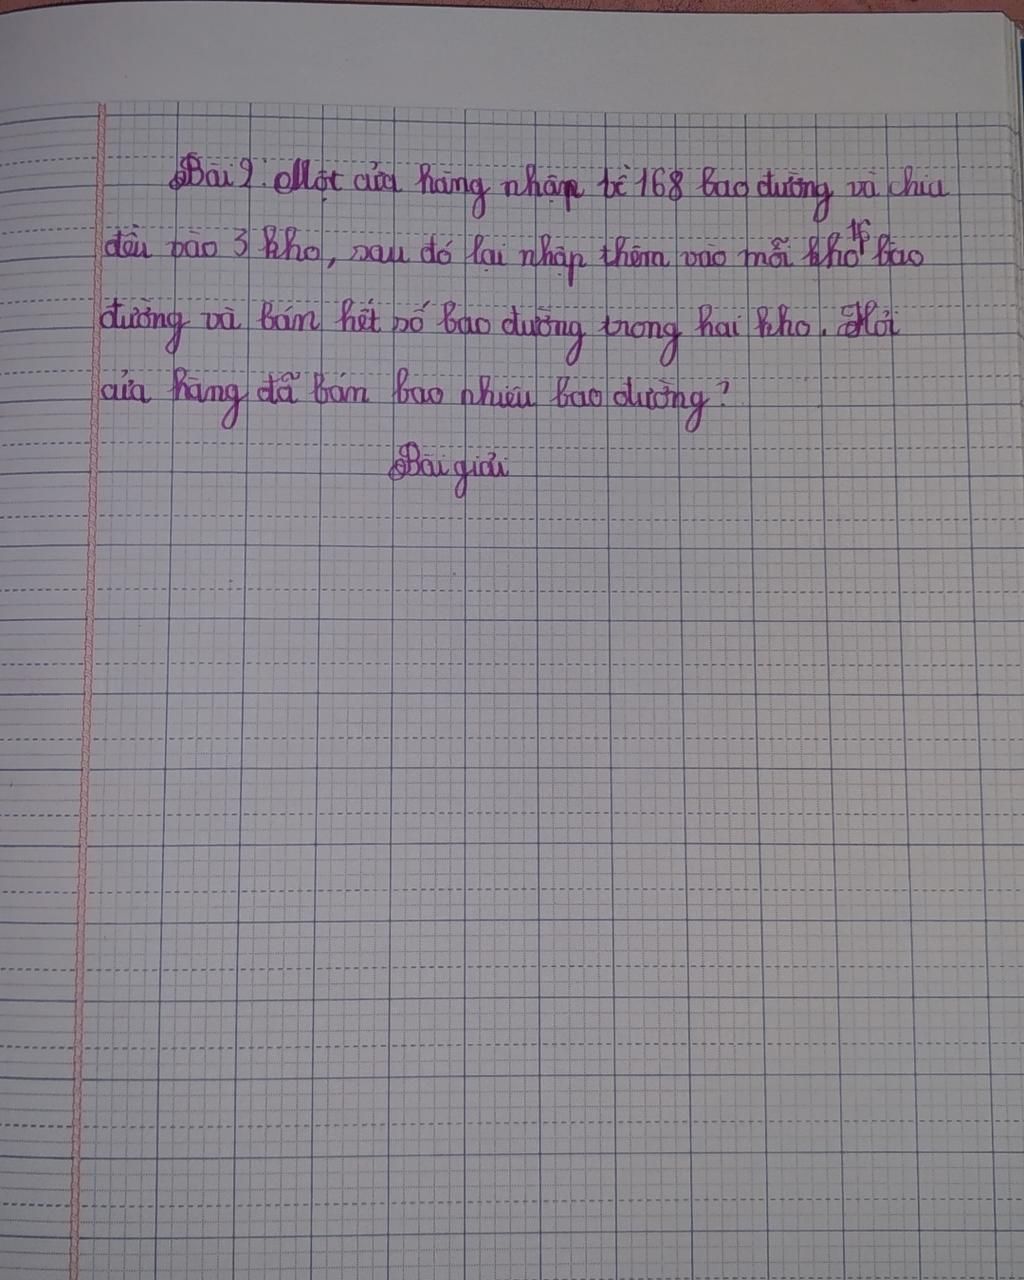 Bài 9. Một cửa hàng nhập về 168 bao đường và chia
đều vào 3 kho, sau đó lại nhập thêm vào mỗi kho 16 bao
đường và bán hết số bao đường trong hai kho. Hỏi
cửa hàng đã bán bao nhiêu bao đường?
Bài giải